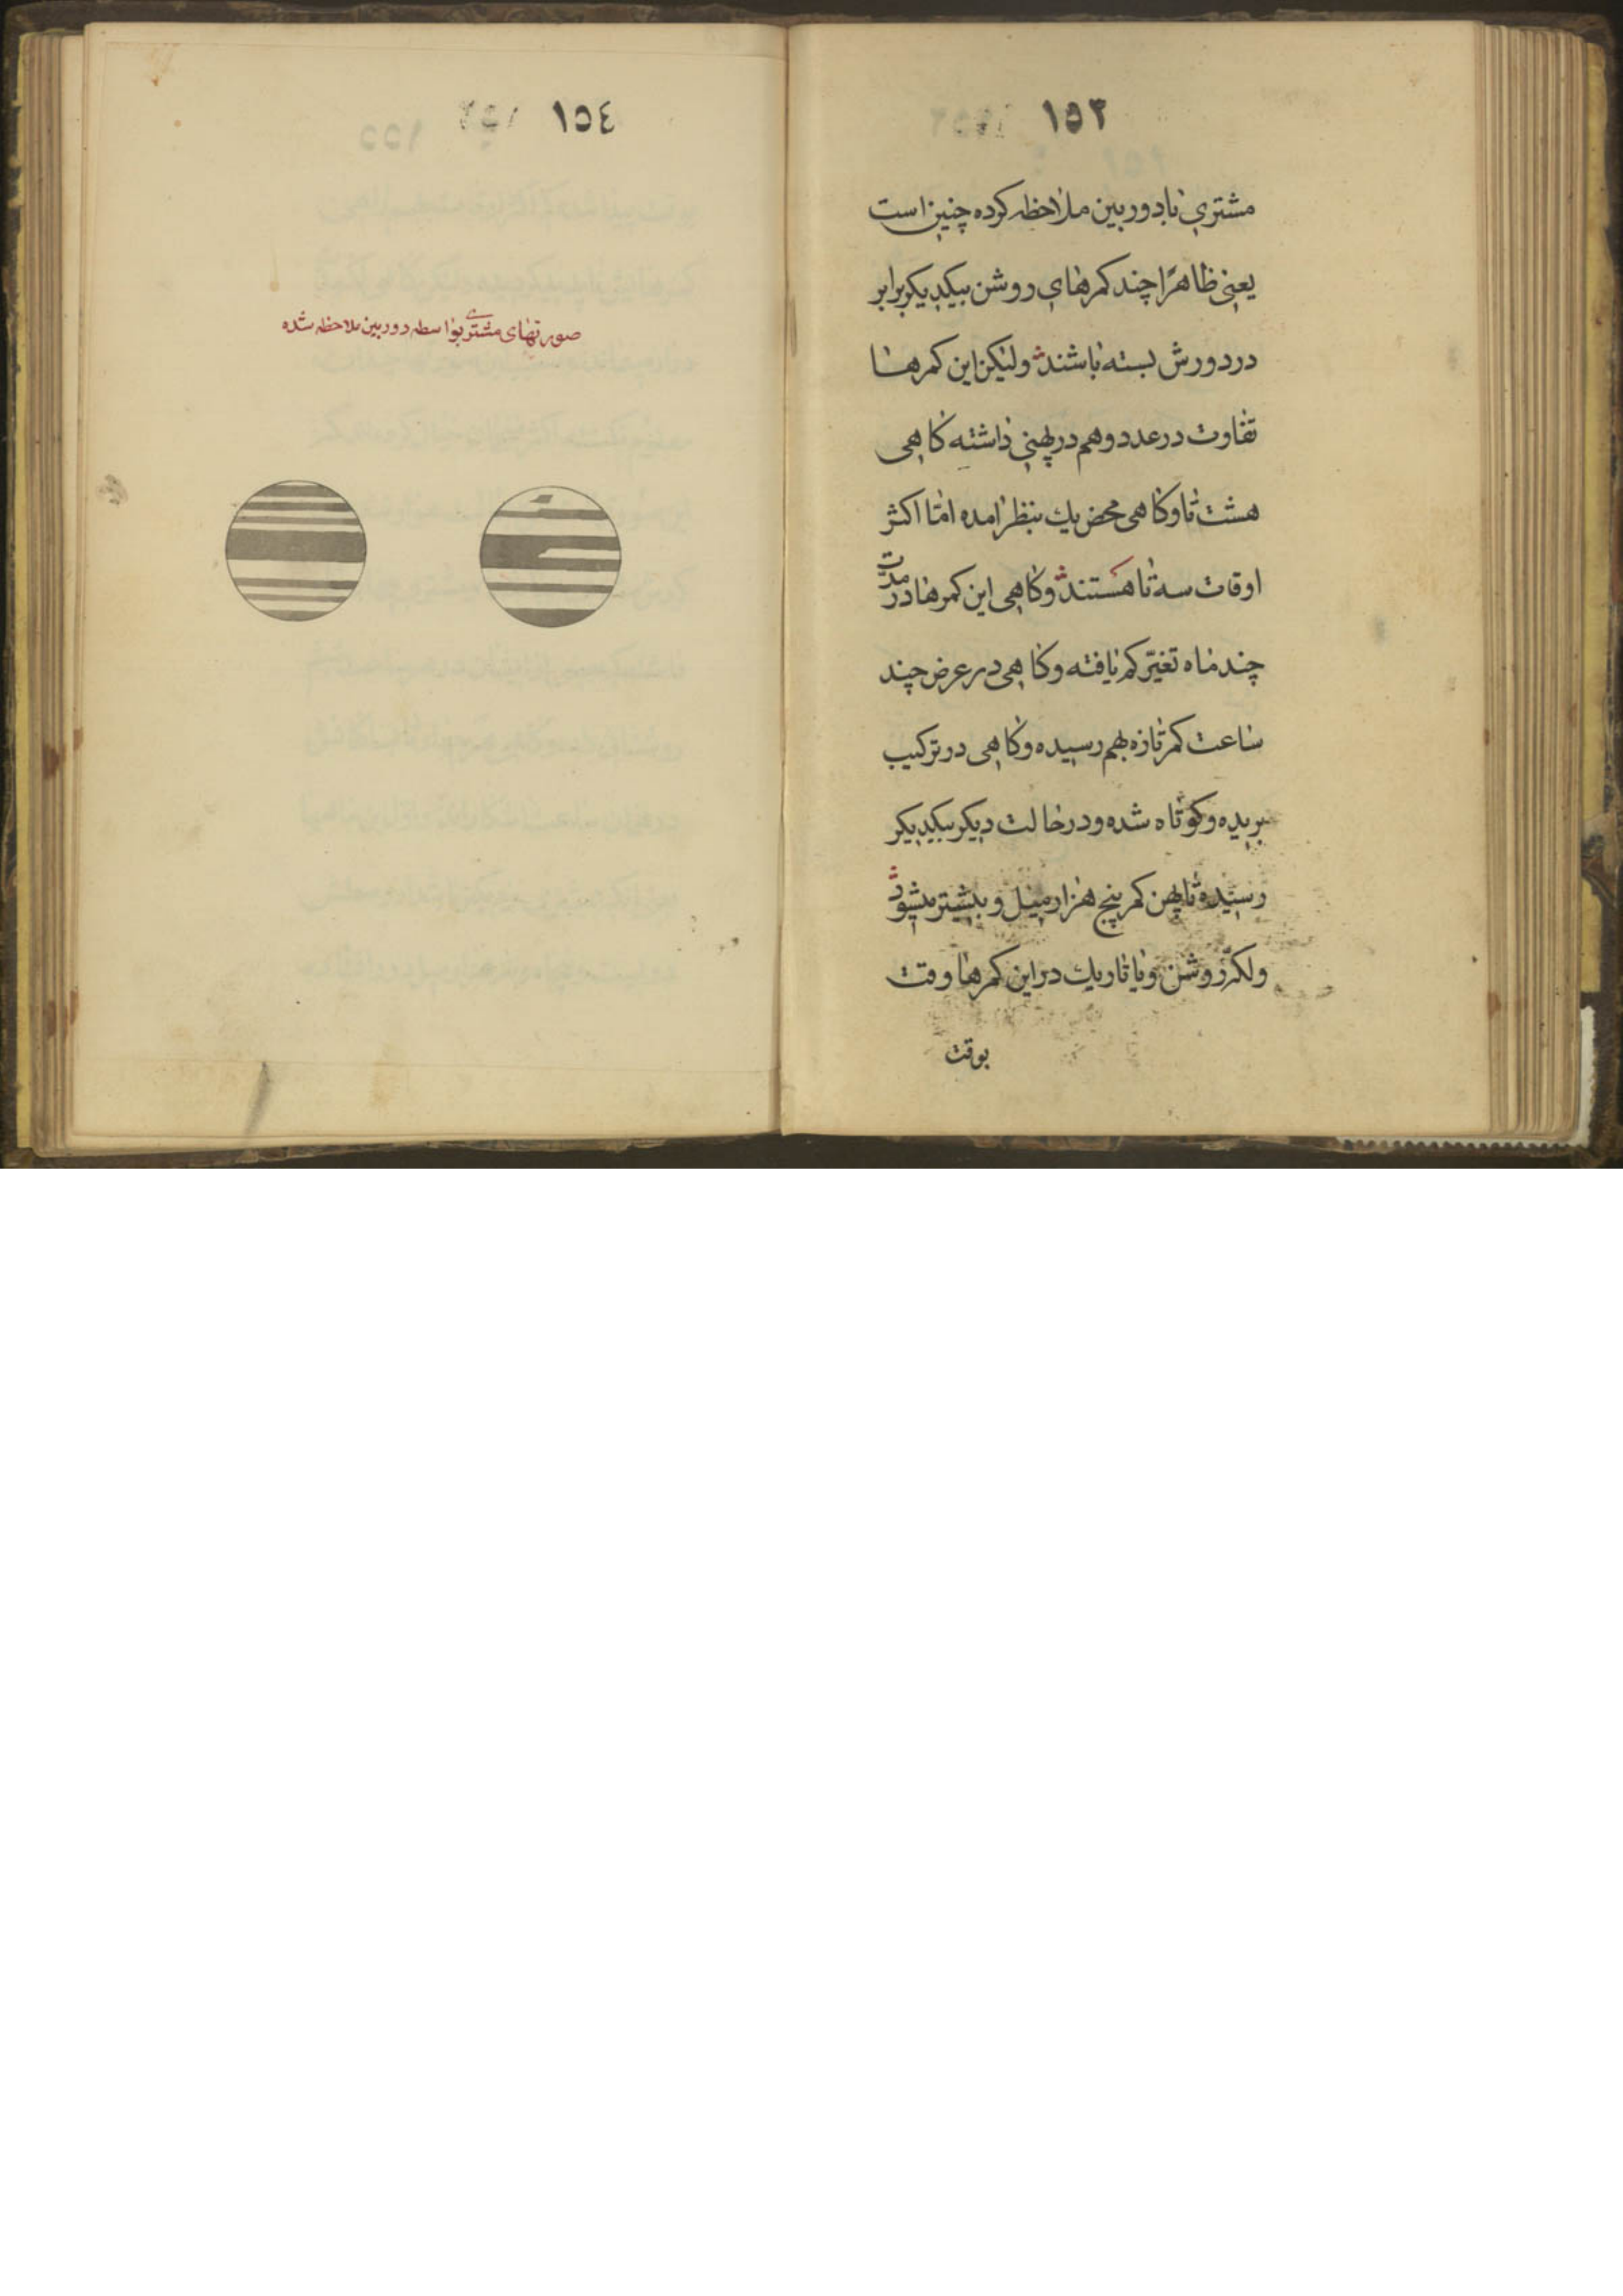 ١٥٣
مشتری با دوربین ملاحظه کرده چنین است
یعنی ظاهرًا چند کمرهای روشن بیکدیکر برابر
در دورش بسته باشند ولیکن این کمرها
تفاوت در عدد و هم در پهنی داشته کاهی
هشت تا و کاهی محض یك بنظر امده امّا اکثر
اوقات سه تا هستند و کاهی این کمرها در مدّت
چند ماه تغیّر کم یافته و کاهی در عرض چند
ساعت کمر تازه بهم رسیده و کاهی در ترکیب
بریده و کوتاه شده و در حالت دیکر بیکدیکر
رسیده تا پهن کمر پنج هزار میل و بیشتر میشود
ولکهٔ روشن و یا تاریك در این کمرها وقت
بوقت
١٥٤
صورتهای مشتری بواسطه دوربین ملاحظه شده